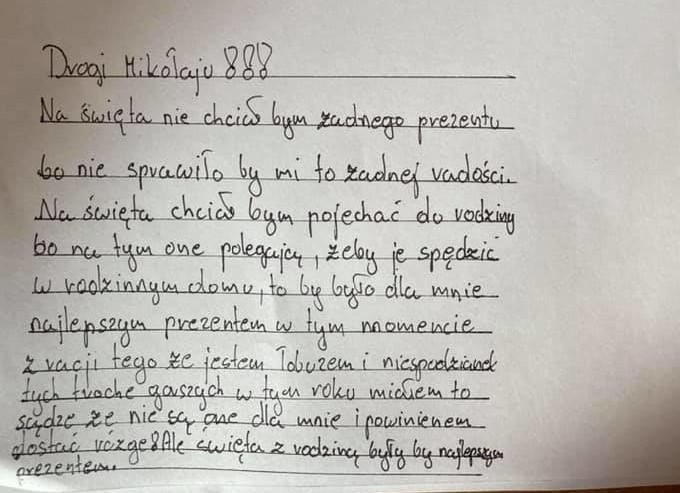 Drogi Mikołaju !!!
Na święta nie chciał bym żadnego prezentu
bo nie sprawiło by mi to żadnej radości.
Na święta chciał bym pojechać do rodziny
bo na tym one polegają, żeby je spędzić
w rodzinnym domu, to by było dla mnie
najlepszym prezentem w tym momencie
z racji tego że jestem łobuzem i niespodzianek
tych troche gorszych w tym roku miałem to
sądze że nie są one dla mnie i powinienem
dostać rózge! Ale święta z rodziną były by najlepszym
prezentem.